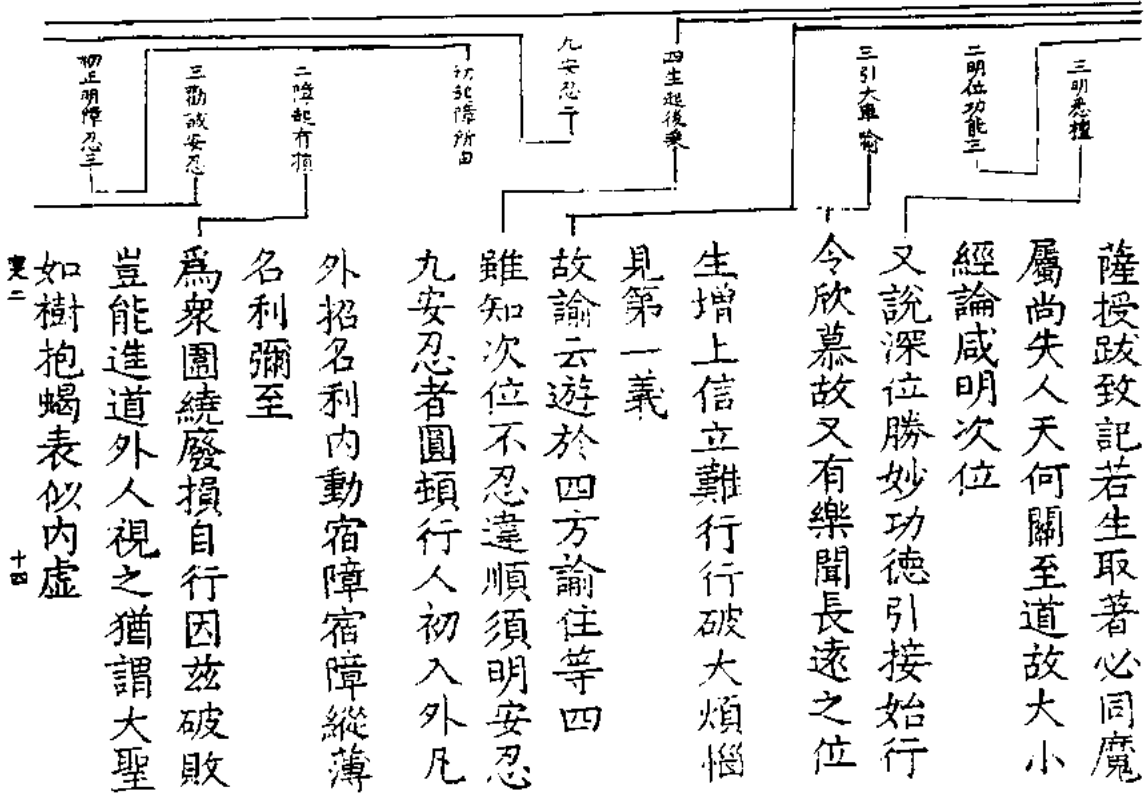 三明悉檀
二明位功能三
三引大車喻
四生起後乗
九安忍二
初起障所由
二障起有損
三勸誡安忍
初正明障忍三
薩授跋致記若生取著必同魔
屬尚失人天何關至道故大小
經論咸明次位
又說深位勝妙功徳引接始行
令欣慕故又有樂聞長遠之位
生增上信立難行行破大煩惱
見第一義
故諭云遊於四方諭住等四
雖知次位不忍違順須明安忍
九安忍者圓頓行人初入外凡
外招名利内動宿障宿障縱薄
名利彌至
爲衆圍繞廢損自行因玆破敗
豈能進道外人視之猶謂大聖
如樹抱蝎表似内虚
十四